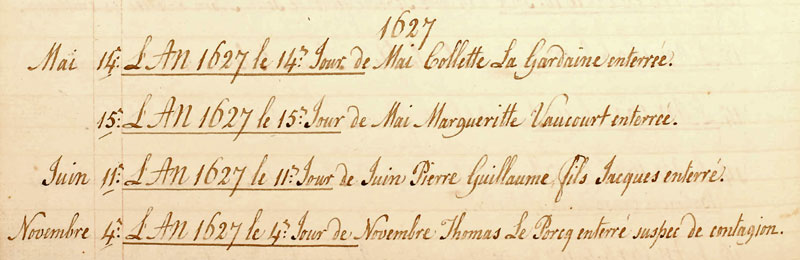 1627
Mai 14. L'AN 1627 le 14.e Jour de Mai Collette La Gardaine enterrée.
15. L'AN 1627 le 15.e Jour de Mai Margueritte Vaucourt enterrée.
Juin 11. L'AN 1627 le 11.e Jour de Juin Pierre Guillaume, fils Jacques enterré.
Novembre 4. L'AN 1627 le 4.e Jour de Novembre Thomas Le Porcq enterré suspec de contagion.